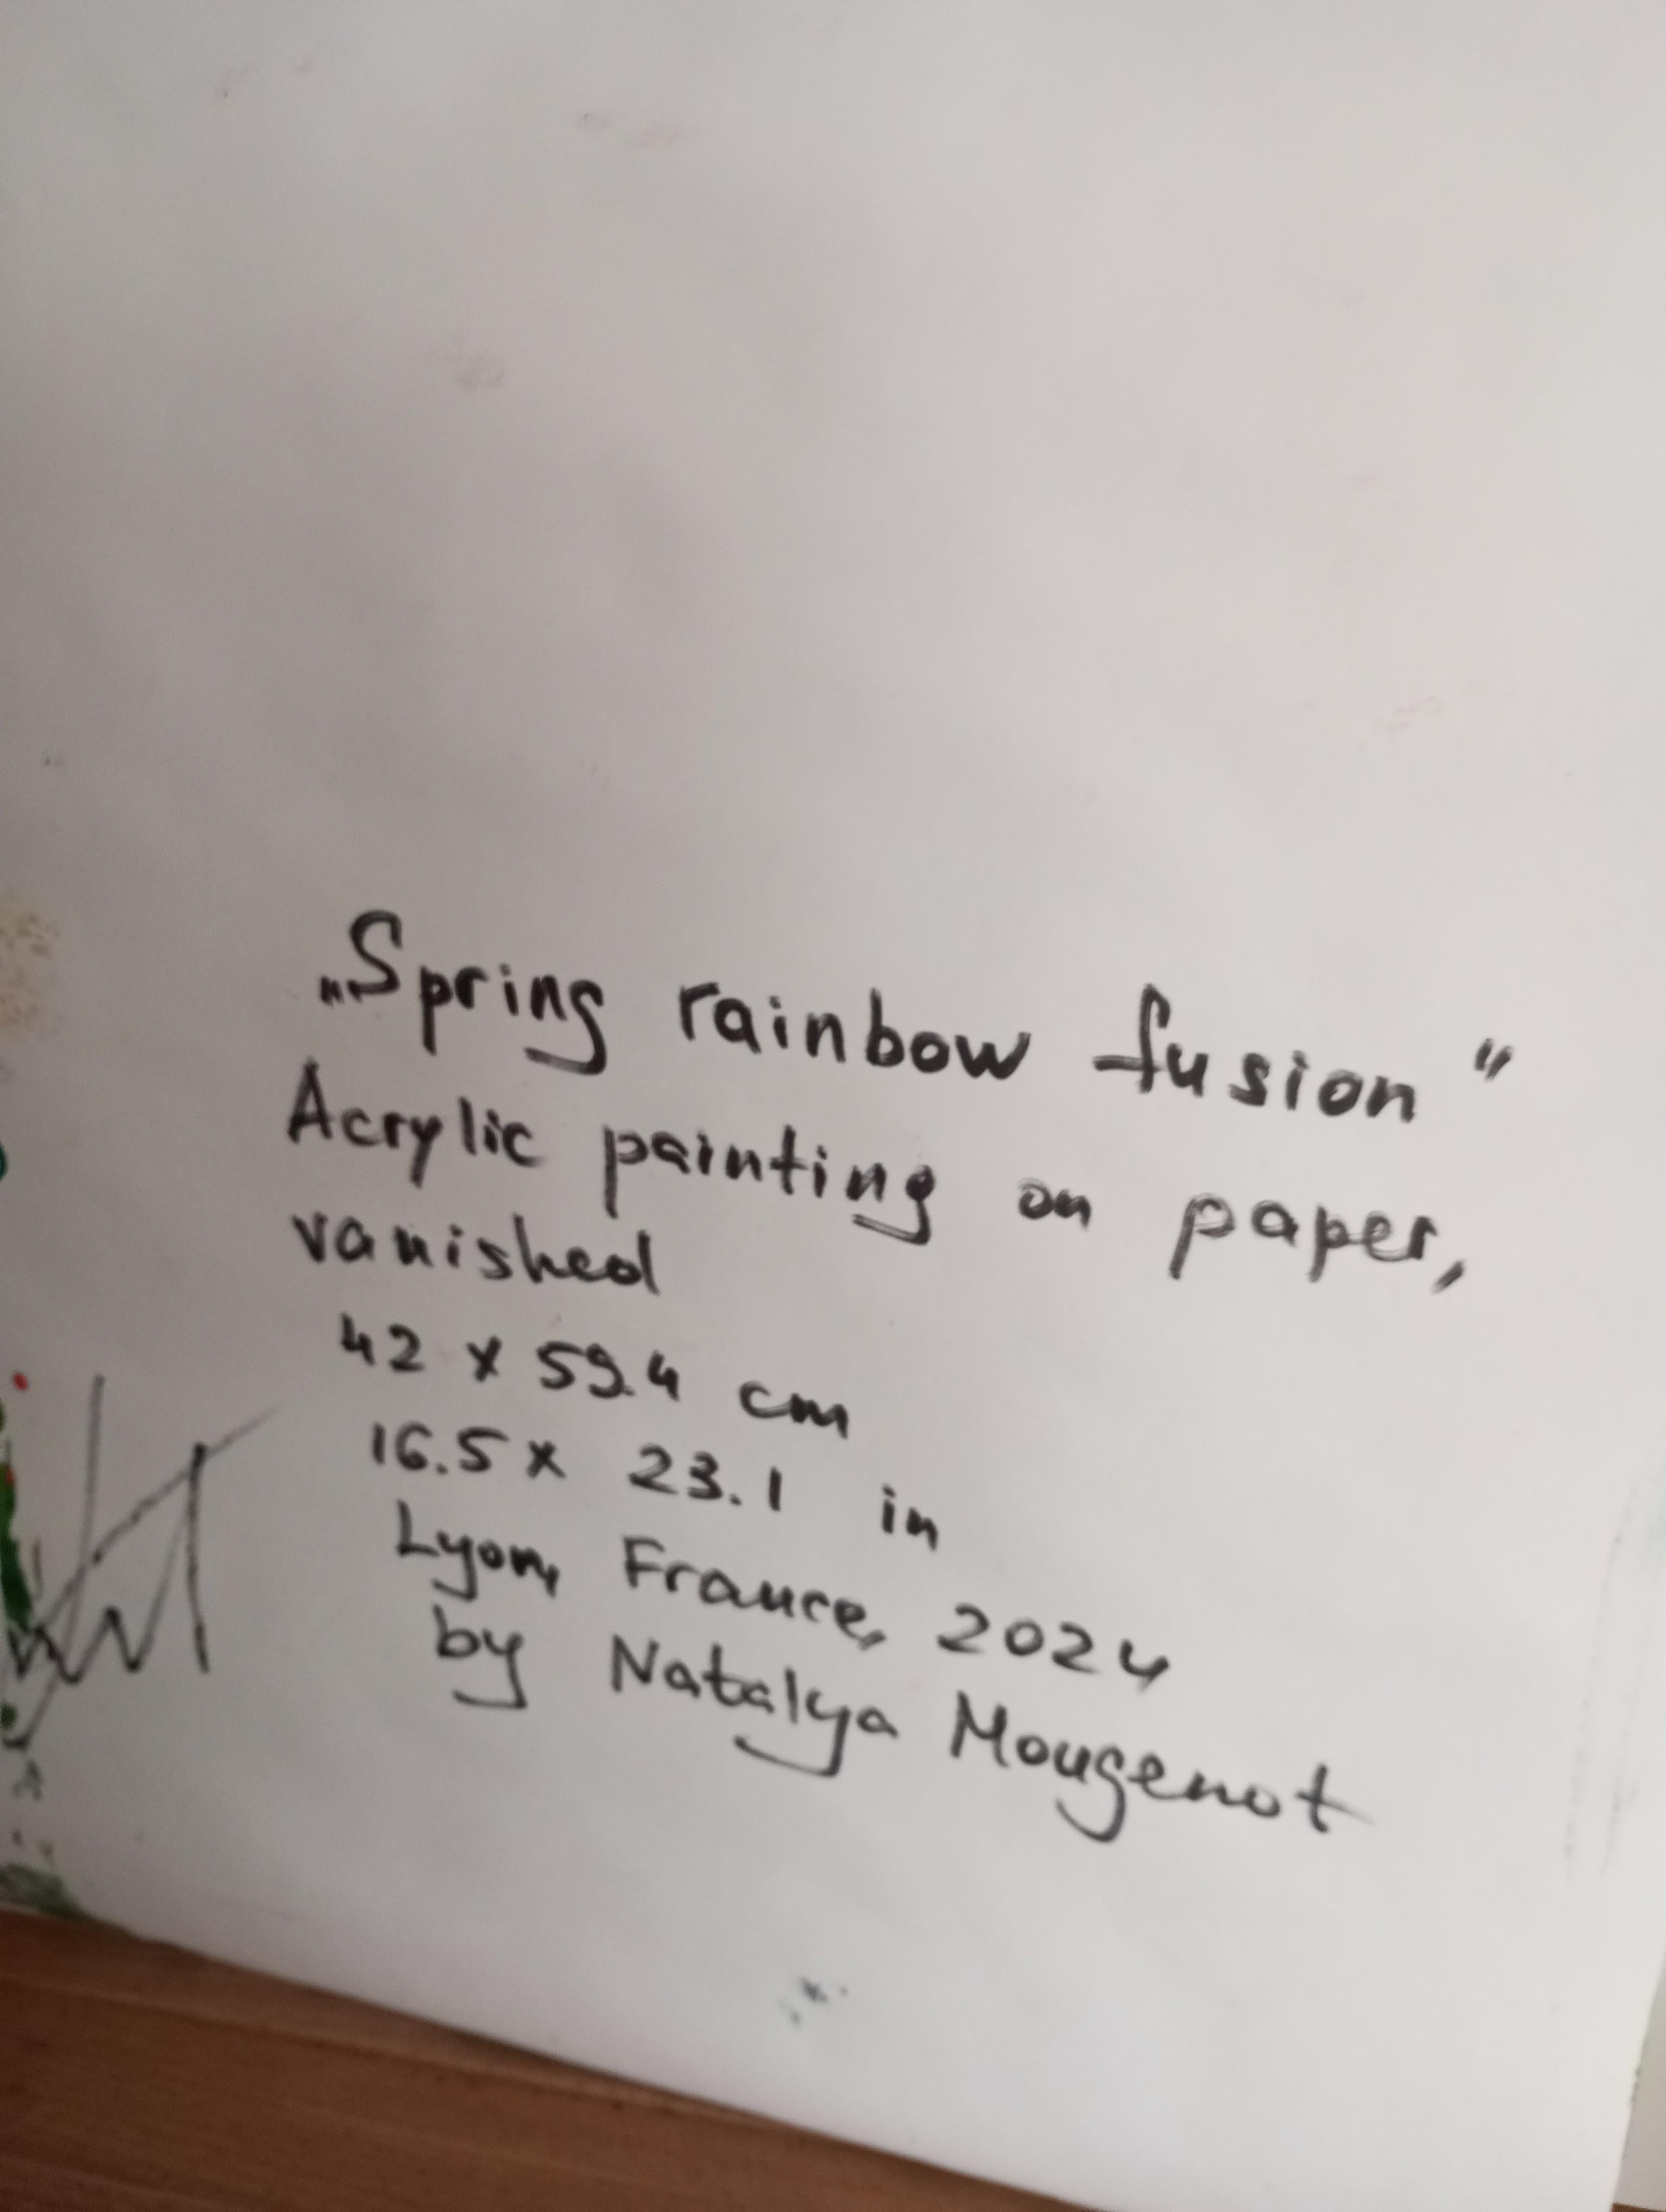 „Spring rainbow fusion"
Acrylic painting on paper,
vanished
42 x 59.4 cm
16.5 x 23.1 in
Lyon, France, 2024
by Natalya Mougenot